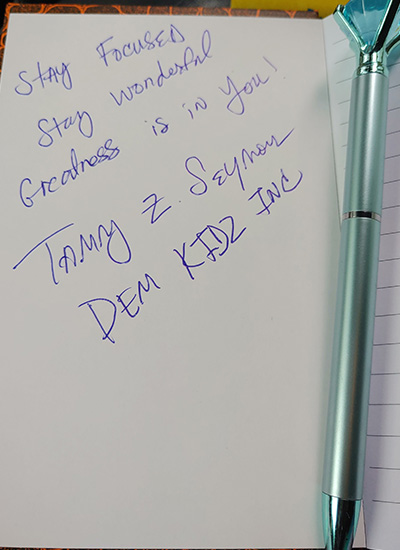 Stay Focused
Stay Wonderful
Greatness is in You!
Tammy Z. Seymour
DEM KIDZ INC